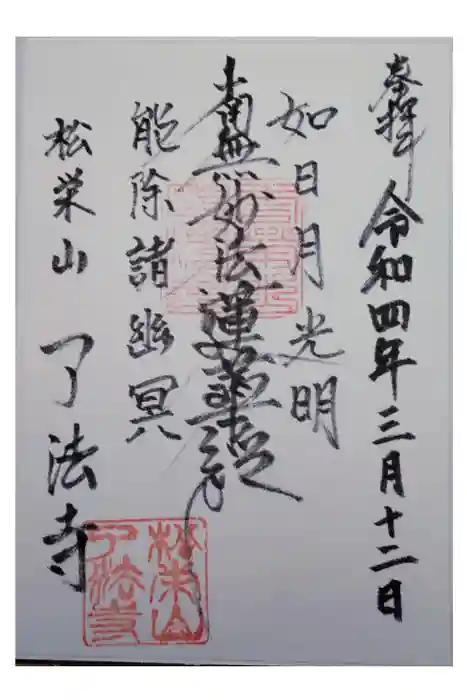 奉拝 令和四年三月十二日
如日月光明
南無妙法蓮華経
能除諸幽冥
松栄山 了法寺
松栄山
了法寺